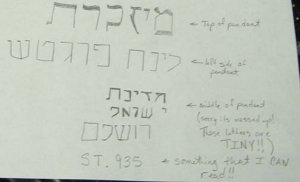 מיזכרת ← Top of pendant
לינח פרגטש ← left side of pendant
מדינת ← middle of pendant
ישראל (sorry its messed up!
רושלם These letters are TINY!!)
ST. 935 ← something that I CAN read!!